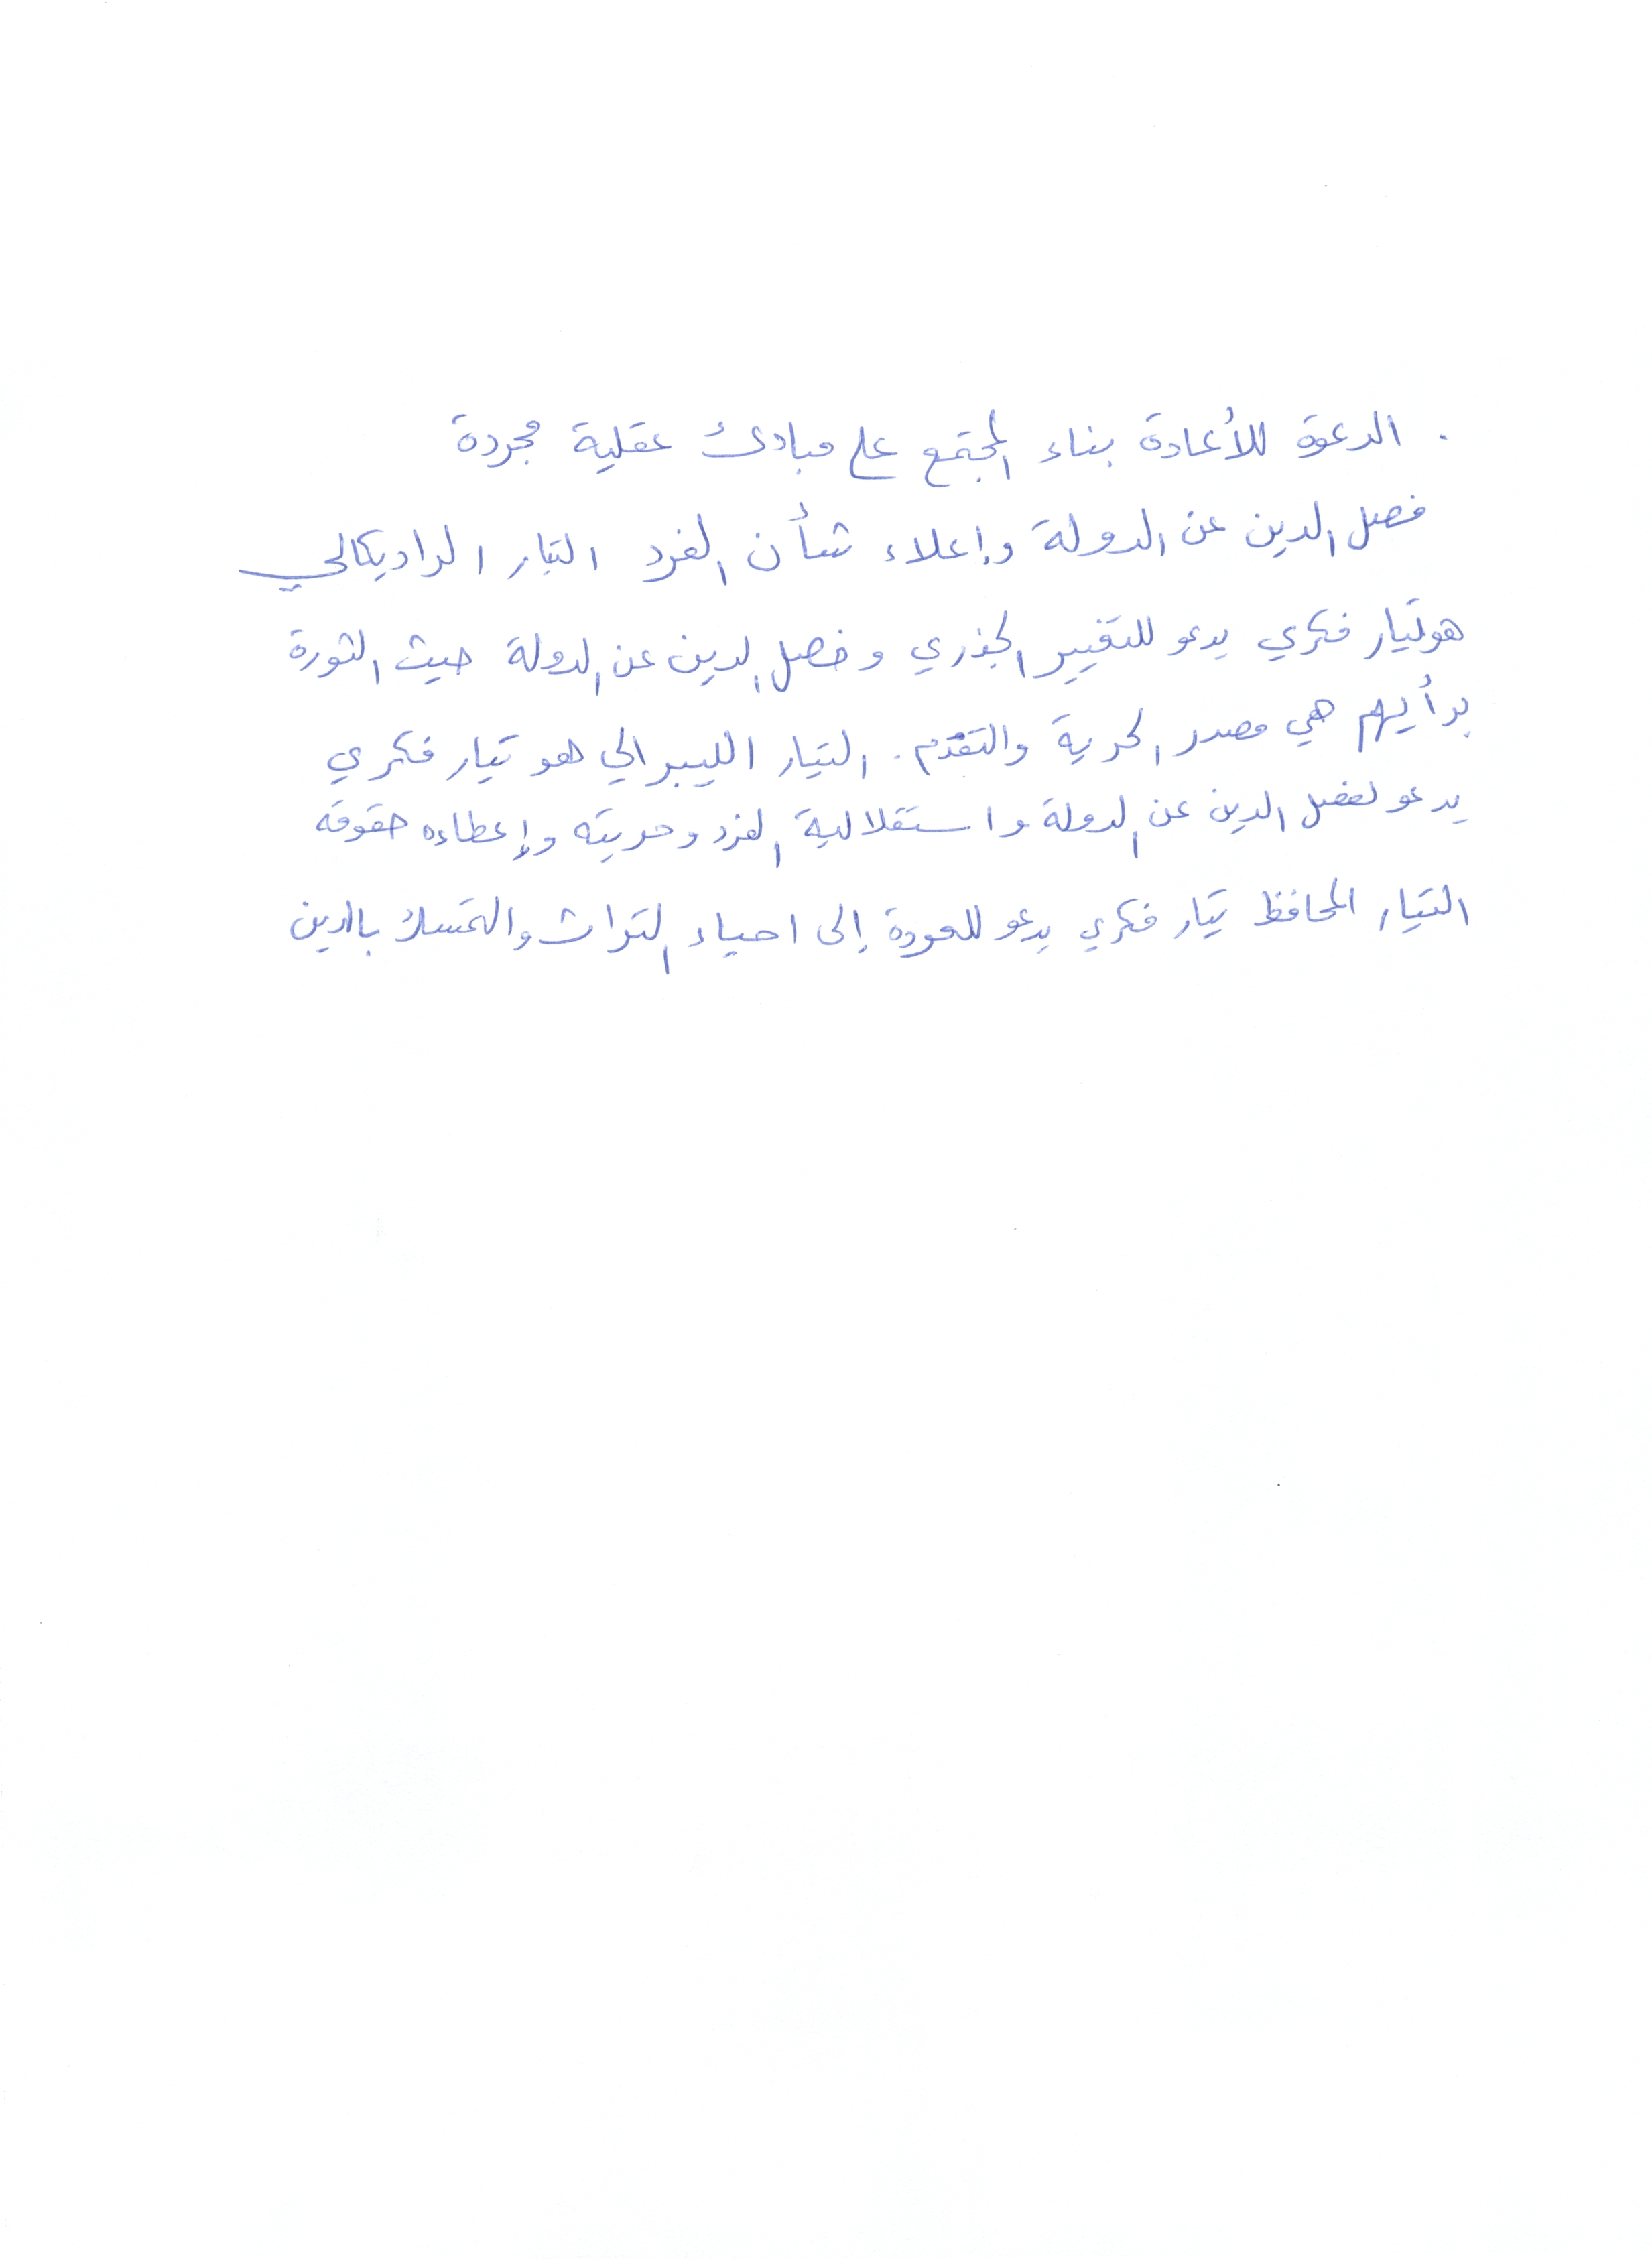 . الدعوة للأعادة بناء المجتمع على مبادئ عقلية مجردة
فصل الدين عن الدولة وإعلاء شأن الفرد التيار الراديكالي
هو تيار فكري يدعو للتغيير الجذري وفصل الدين عن الدولة حيث الثورة
برأيهم هي مصدر الحرية والتقدم. التيار الليبرالي هو تيار فكري
يدعو لفصل الدين عن الدولة واستقلالية الفرد وحريته وإعطاءه حقوقه
التيار المحافظ تيار فكري يدعو للعودة إلى احياء التراث والتمسك بالدين